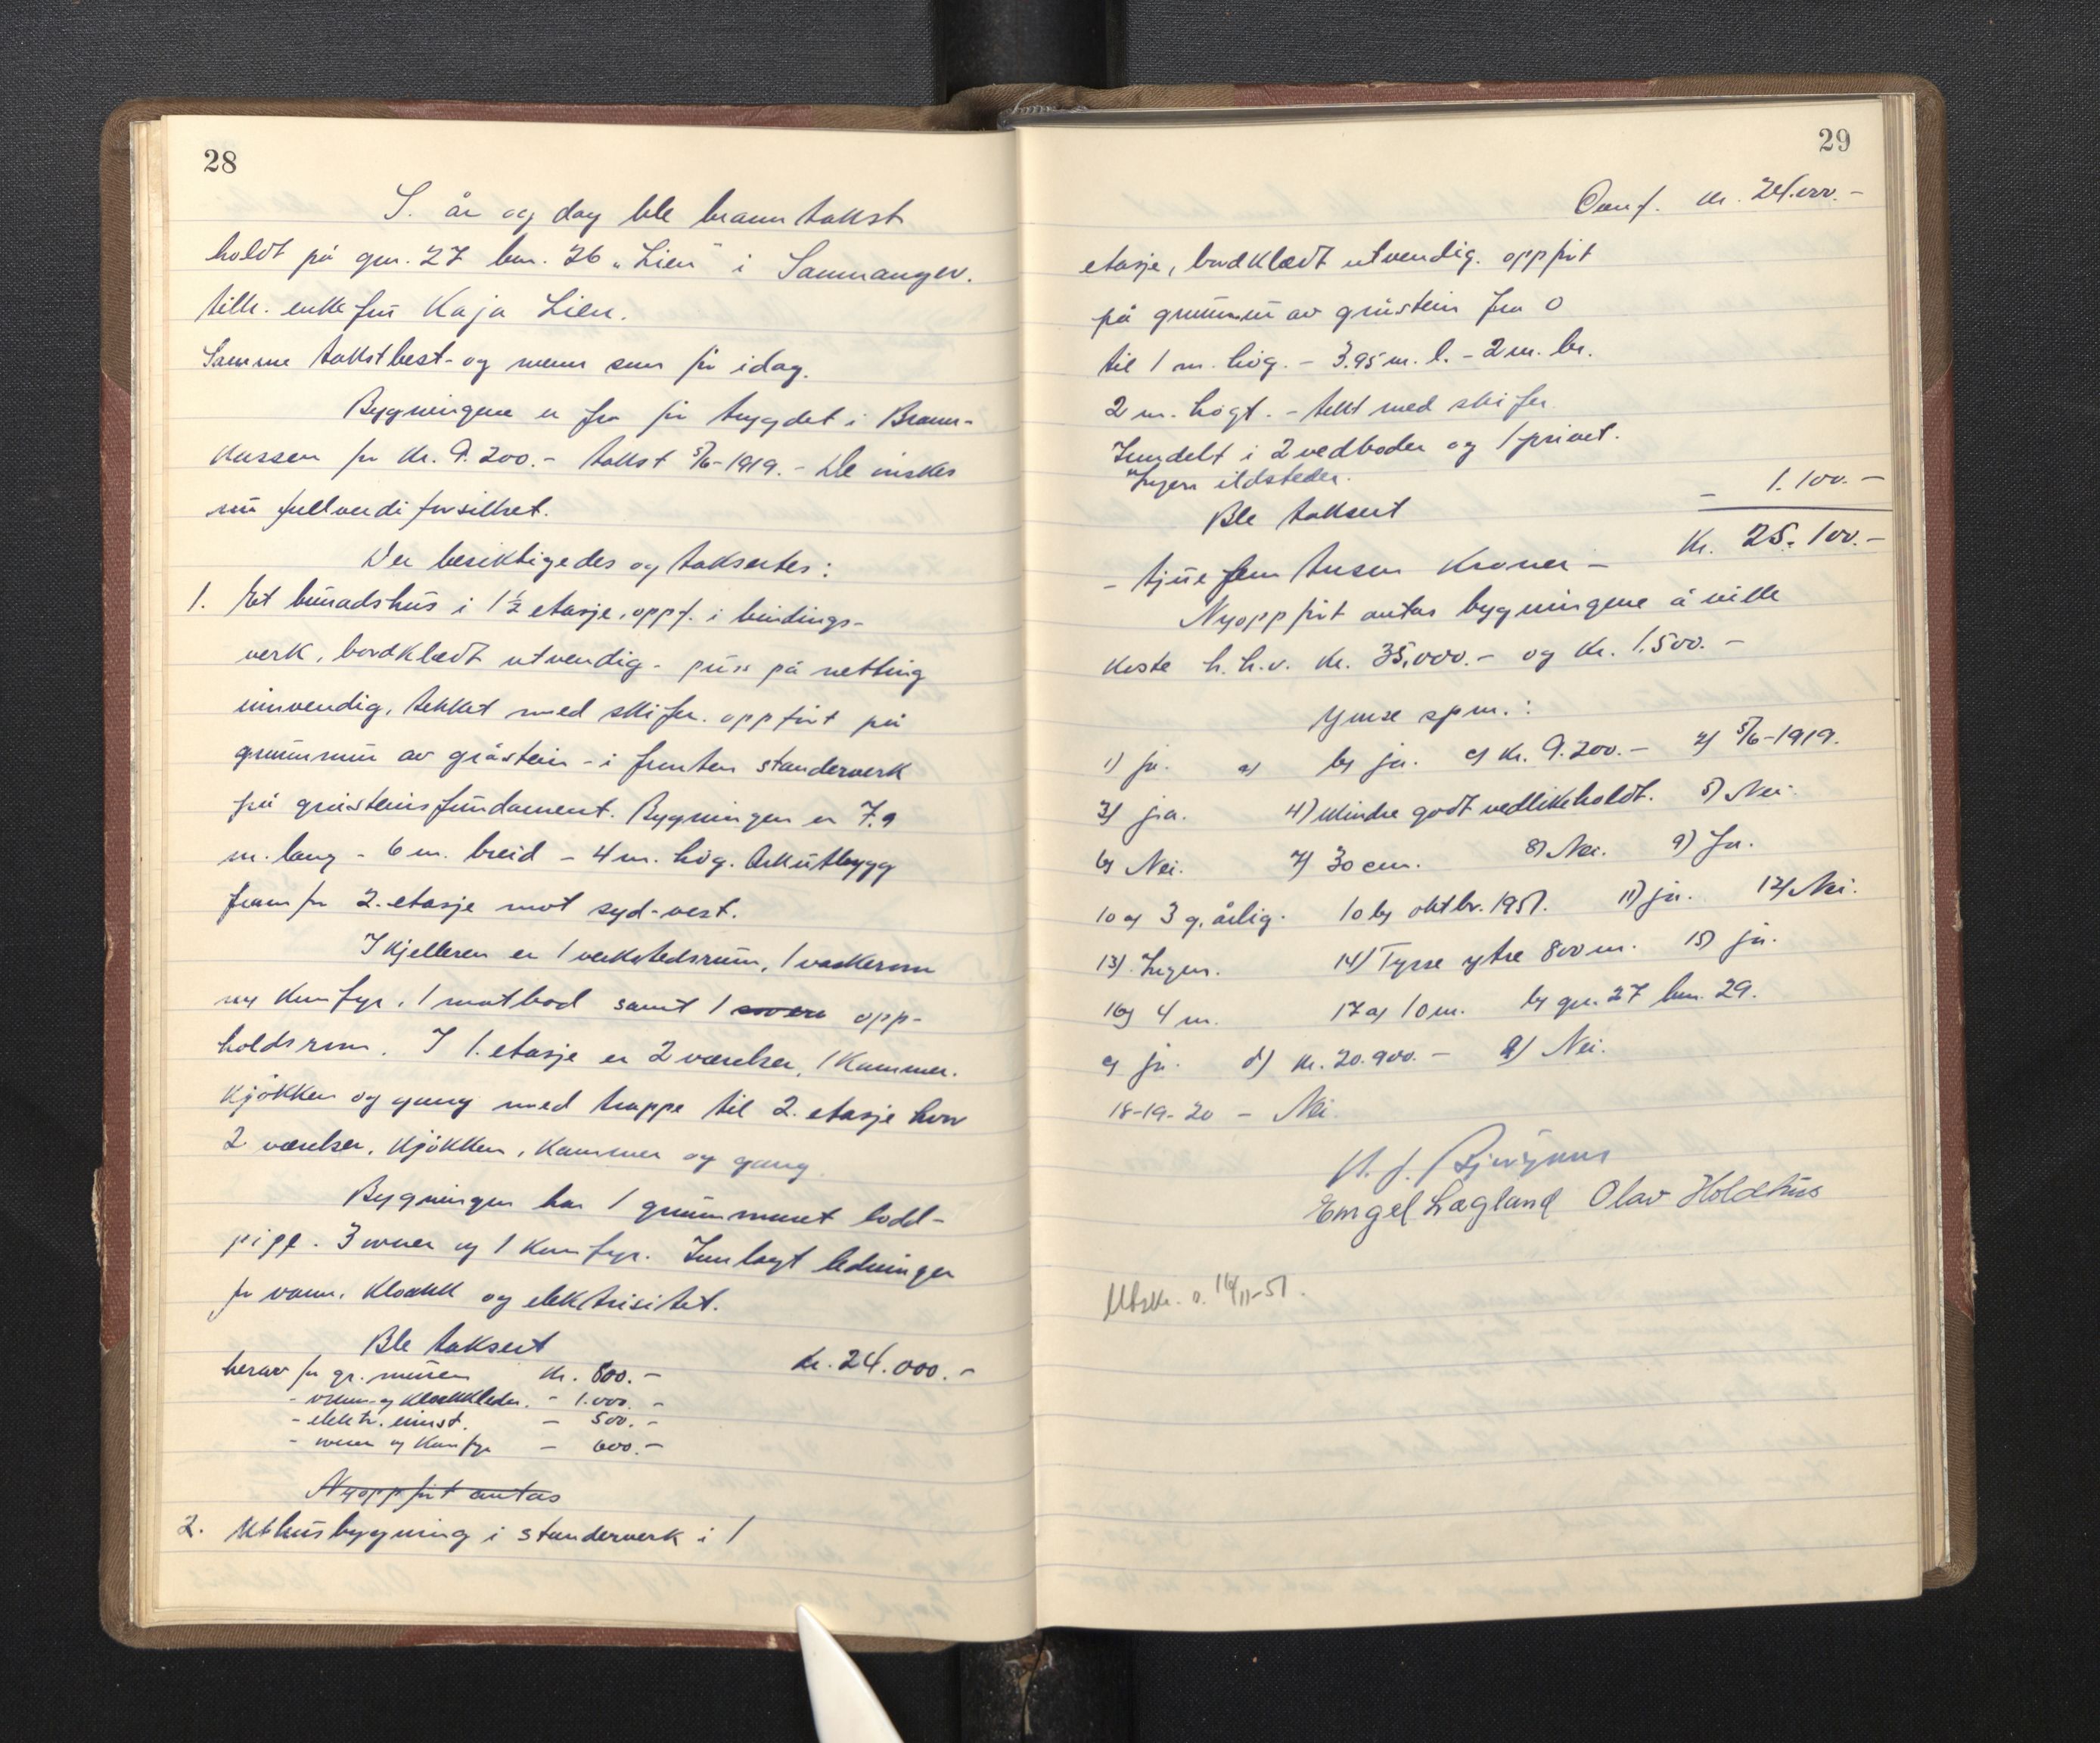 28
S. år og dag ble branntakst
holdt på gnr. 27 bnr. 26 "Lien" i Samnanger.
tilh. enkefru Kaja Lien.
Samme takstbest- og menn som før idag.
Bygningene er fra før trygdet i Brann-
kassen for kr. 9.200.- takst 5/6-1919. - De ønskes
nu fullverdiforsikret.
Der besiktigedes og taksertes:
1. Et bunadshus i 1 ½ etasje, oppf. i bindings-
verk, bordklædt utvendig - puss på netting
innvendig, tekket med skifer. oppført på
grunnmur av gråstein - i fronten standerverk
på gråsteinsfundament. Bygningen er 7.9
m. lang - 6 m. breid - 4 m. høg. Arkutbygg
fram for 2. etasje mot syd-vest.
I kjelleren er 1 verkstedsrum, 1 vaskerom
m/ komfyr, 1 matbod samt 1 opp-
holdsrom. I 1. etasje er 2 værelser, 1 kammer.
kjøkken og gang med trappe til 2. etasje hvor
2 værelser, kjøkken, kammer og gang
Bygningen har 1 grunnmuret lodd-
pipe. 3 ovner og 1 komfyr. Innlagt ledninger
for vann, kloakk og elektrisitet.
Ble taksert kr. 24.000.-
herav for gr. muren kr. 800.-
- vann- og kloakkledn. - 1.000.-
- elektr. innst. - 500.-
- ovner og komfyr - 600.-
Nyoppført antas
2. Uthusbygning i standerverk i 1
29
Overf. kr. 24.000.-
etasje, bordklædt utvendig. oppført
på grunnmur av gråstein fra 0
til 1 m. høg. - 3.95 m. l. - 2 m. br.
2 m. høgt. - tekt med skifer
Inndelt i 2 vedboder og 1 privet.
Ingen ildsteder.
Ble taksert - 1.100.-
Kr. 25.100.-
- tjuefem tusen kroner -
Nyoppført antas bygningene å ville
koste h.h.v. kr. 35.000.- og kr. 1.500.-
Ymse spm.:
1) ja. a) b) ja. c) kr. 9.200.- 2) 5/6-1919.
3) ja. 4) Mindre godt vedlikeholdt. 5) Nei.
6) Nei. 7) 30 cm. 8) Nei. 9) Ja.
10 a) 3 g. årlig. 10 b) oktbr. 1951. 11) ja. 12) Nei.
13). Ingen. 14) Tysse ytre 800 m. 15) ja.
16) 4 m. 17 a) 10 m. b) gnr. 27 bnr. 29.
c) ja. d) kr. 20.900.- e) Nei.
18-19-20 - Nei.
Engel Lægland Olav Holdhus
Utskr. s. 16/11-51.